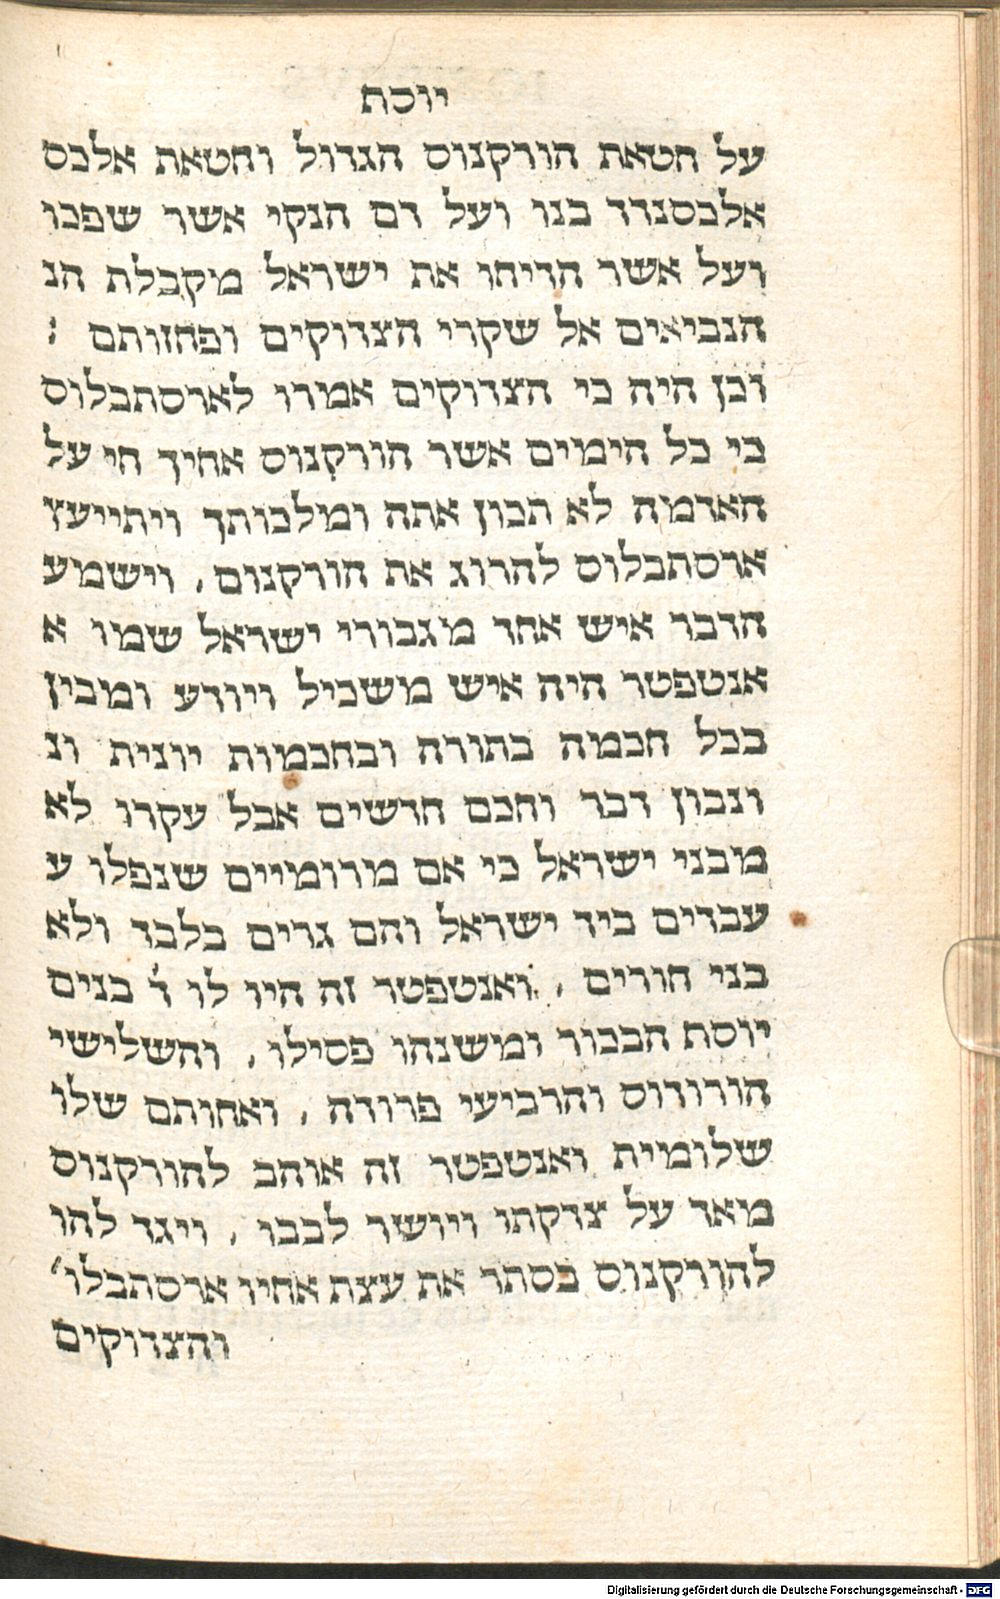 יוסף
על חטאת הורקנוס הגדול וחטאת אלכס
אלכסנדר בנו ועל דם הנקי אשר שפכו
ועל אשר הדיחו את ישראל מקבלת הנ
הנביאים אל שקרי הצדוקים ופחזותם :
וכן היה כי הצדוקים אמרו לארסתבלוס
כי כל הימים אשר הורקנוס אחיך חי על
האדמה לא תכון אתה ומלכותך ויתייעץ
ארסתבלוס להרוג את הורקנוס , וישמע
הדבר איש אחד מגבורי ישראל שמו א
אנטפטר היה איש משכיל ויודע ומבין
בכל חכמה בתורה ובחכמות יונית ונ
ונבון דבר וחכם חרשים אבל עקרו לא
מבני ישראל כי אם מרומיים שנפלו ע
עבדים ביד ישראל והם גרים בלבד ולא
בני חורים , ואנטפטר זה היו לו ד' בנים
יוסף הבכור ומשנהו פסילו , והשלישי
הורודוס והרביעי פרודה , ואחותם שלו
שלומית ואנטפטר זה אוהב להורקנוס
מאד על צדקתו ויושר לבבו , ויגד להו
להורקנוס בסתר את עצת אחיו ארסתבלו'
והצדוקים
Digitalisierung gefördert durch die Deutsche Forschungsgemeinschaft - DFG